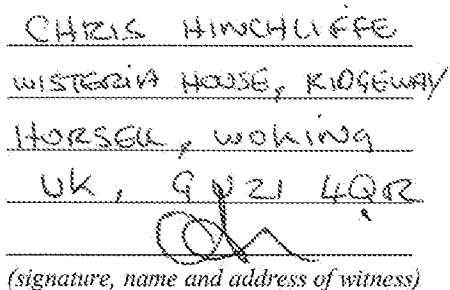 CHRIS HINCHLIFFE
WISTERIA HOUSE, RIDGEWAY
HORSELL, WOKING
UK, GU21 4QR
(signature, name and address of witness)